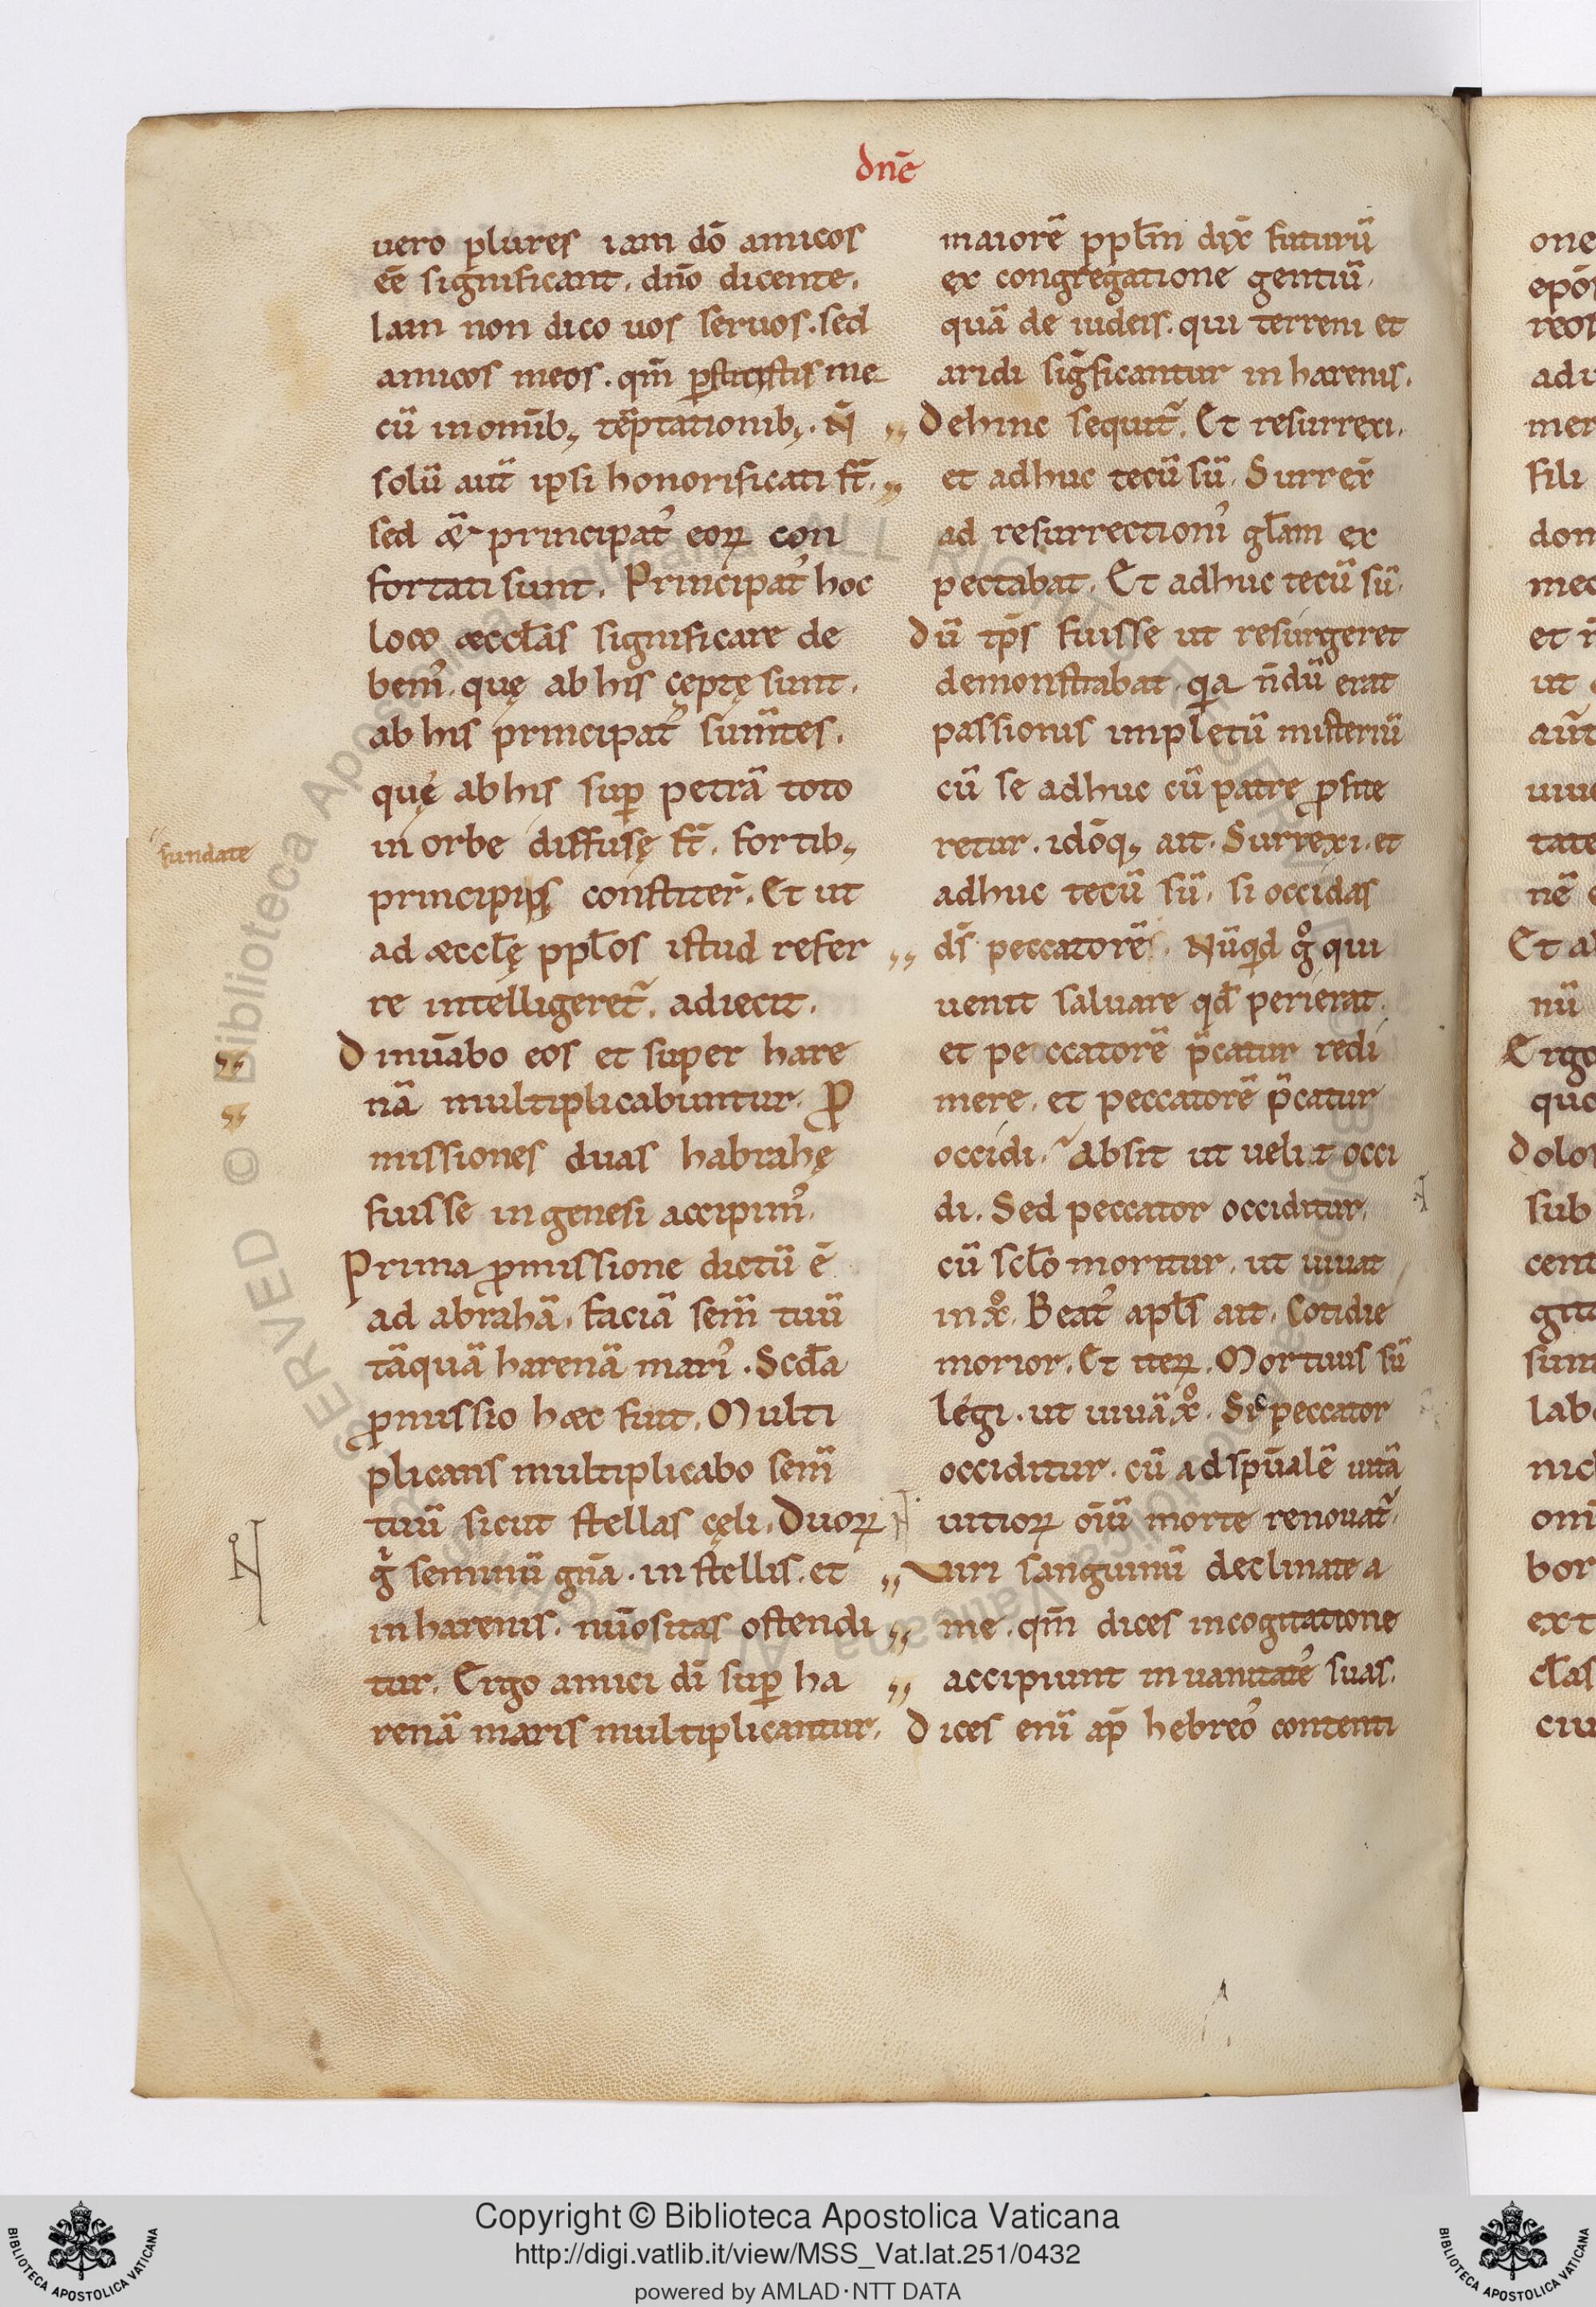 dnē
uero plures iam dō amicos
eē significant. dn̄o dicente.
Iam non dico uos seruos. sed
amicos meos. qm̄ me
cū in omīb; tēptationib;. N̄
solū aūt ipsi honorificati st̄.
sed æ principat᾽ eoꝝ con
fortati sunt. Principat᾽ hoc
loco æcclāis significare de
bem᾽. quę ab his cęptę sunt.
ab his principat᾽ sum̄tes.
quę ab his sup̱ petrā toto
fundate
in orbe diffusę st̄. fortib;
principiis constiter̄. Et ut
ad æccl̄ę ppl̄os istud refer
re intelligeret̄. adiecit.
Dinūabo eos et super hare
nā multiplicabuntur. Pro
missiones duas habrahę
fuisse in genesi accipim᾽.
Prima ꝓmissione dictū ē
ad abrahā. Faciā sem̄ tuū
tāquā harenā mari᾽. Scd̄a
ꝓmissio hæc fuit. Multi
plicans multiplicabo sem̄
tuū sicut stellas cęli. Duoꝝ
g̊ seminū gn̄a. in stellis. et
in harenis. nūositas ostendi
tur. Ergo amici dī sup̱ ha
renā maris multiplicantur.
maiorē ppl̄m dix̄ futurū
ex congregatione gentiū.
quā de iudeis. qui terreni et
aridi siḡficantur in harenis.
Dehinc sequit̄. Et resurrexi.
et adhuc tecū sū. Surrex̄
ad resurrectioni᾽ gl̄am ex
pectabat. Et adhuc tecū sū.
dū tp̄s fuisse ut resurgeret
demonstrabat. qia n̄dū erat
passionis impletū misteriū
cū se adhuc cū patre ꝓfite
retur. idōq; ait. Surrexi. et
adhuc tecū sū. si occidas
ds̄ peccatorē. Nūqid g̊ qui
uenit saluare qd̄ perierat.
et peccatorē p̄catur redi
mere. et peccatorē p̄catur
occidi. Absit ut uelit occi
di. Sed peccator occiditur.
cū scl̄o moritur. ut uiuat
in xo. Beat᾽ apl̄s ait. Cotidie
morior. Et iteꝝ. Mortuus sū
legi. ut uiuā xo. Si peccator
occiditur. cū ad spūalē uitā
uitioꝝ oīū morte renouat̄.
Viri sanguinū declinate a
me. qm̄ dices in cogitatione
accipiunt in uanitate suas.
Dices enī ap̄ hebreo᾽ contenti
Copyright © Biblioteca Apostolica Vaticana
http://digi.vatlib.it/view/MSS_Vat.lat.251/0432
powered by AMLAD·NTT DATA
BIBLIOTECA APOSTOLICA VATICANA
BIBLIOTECA APOSTOLICA VATICANA